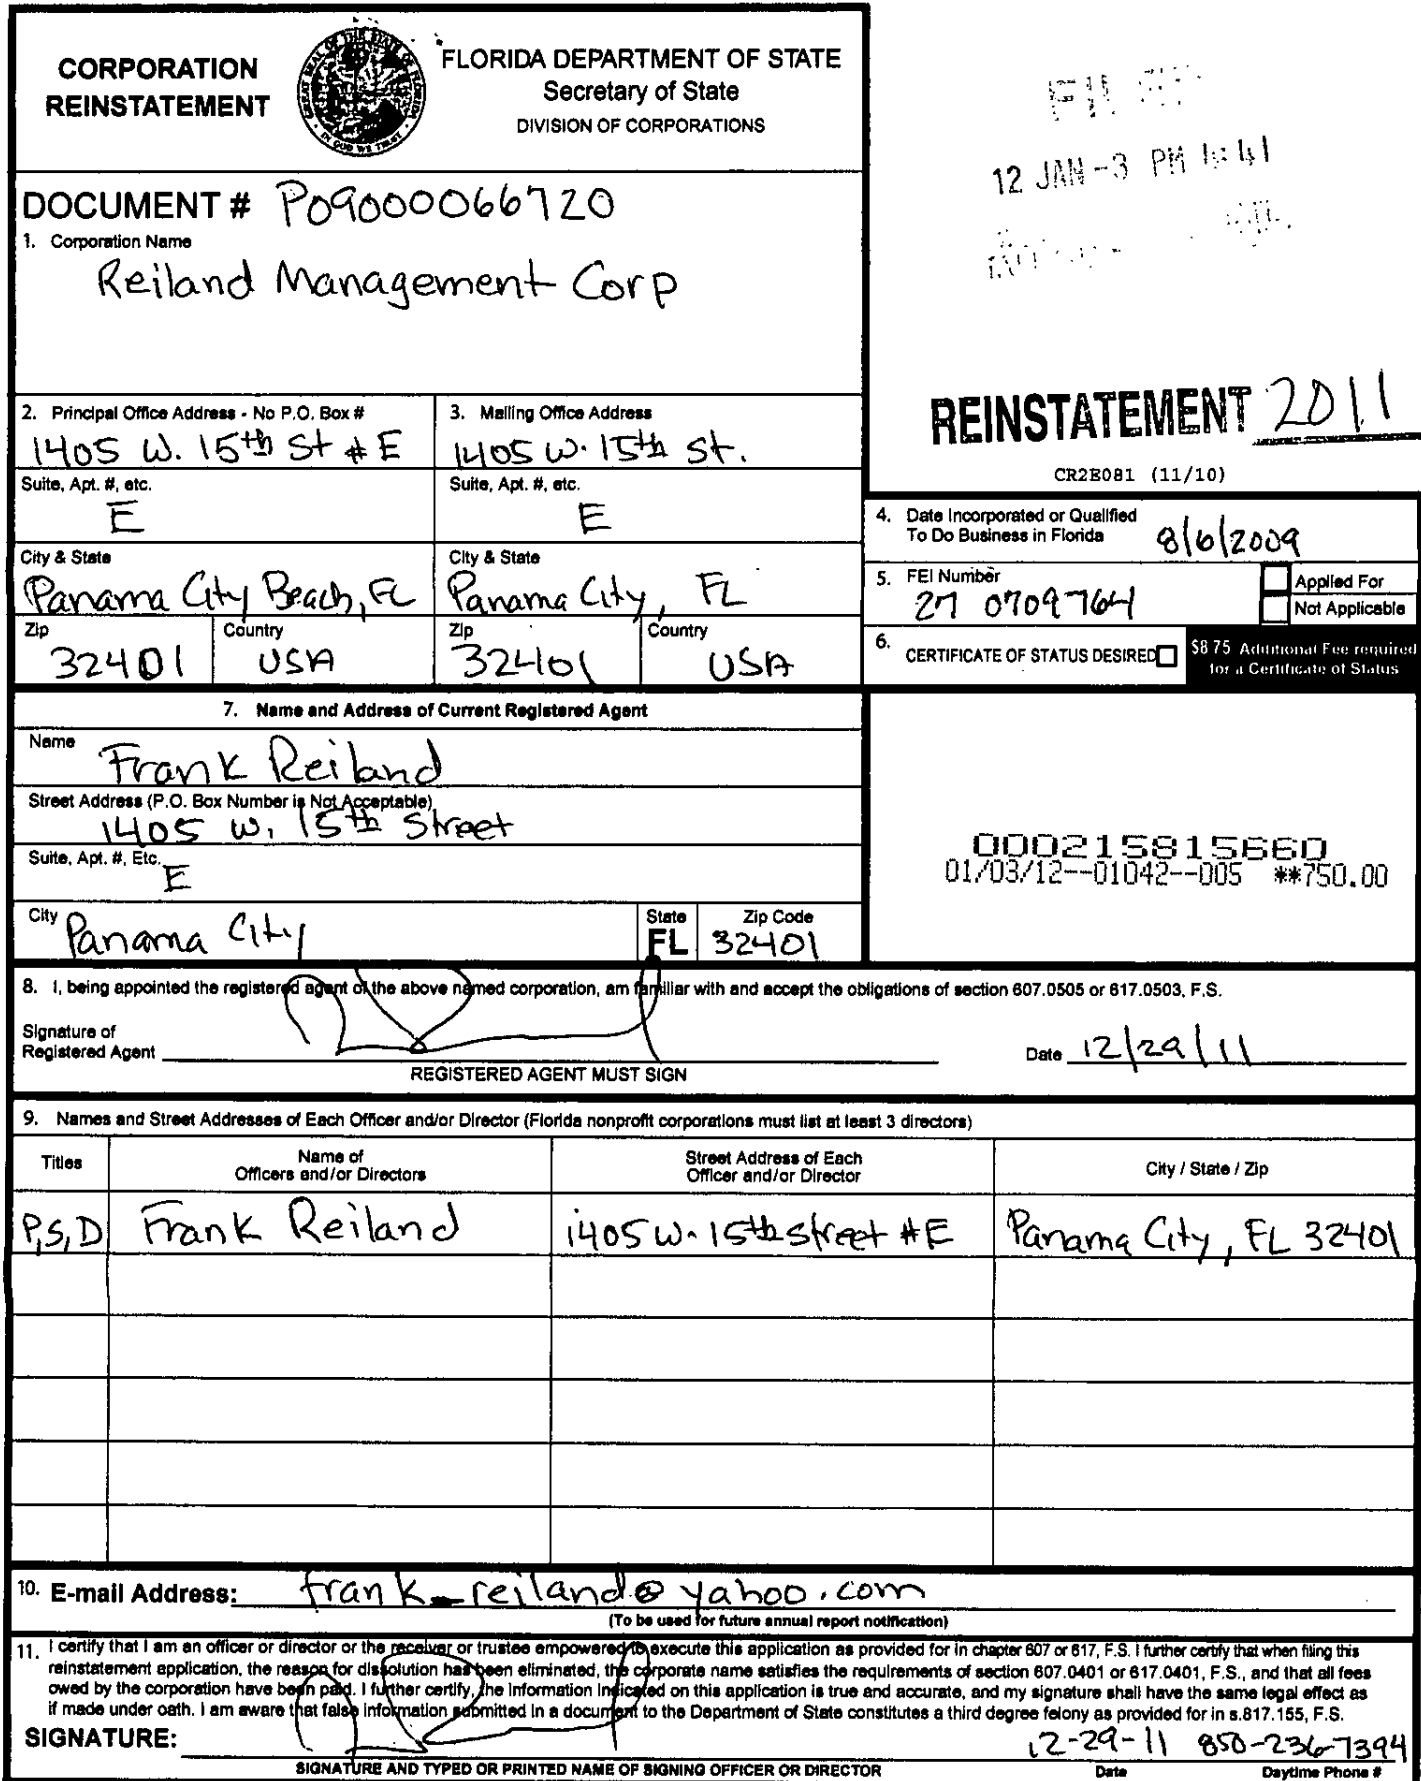 CORPORATION
REINSTATEMENT
FLORIDA DEPARTMENT OF STATE
Secretary of State
DIVISION OF CORPORATIONS
12 JAN -3 PM
DOCUMENT # P09000066720
1. Corporation Name
Reiland Management Corp
REINSTATEMENT 2011
CR2E081 (11/10)
2. Principal Office Address - No P.O. Box #
1405 W. 15th St # E
Suite, Apt. #, etc.
E
City & State
Panama City Beach, FL
Zip
32401
Country
USA
3. Mailing Office Address
1405 W. 15th St.
Suite, Apt. #, etc.
E
City & State
Panama City, FL
Zip
32401
Country
USA
4. Date Incorporated or Qualified
To Do Business in Florida 8/6/2009
5. FEI Number
27 0709764
Applied For
Not Applicable
6. CERTIFICATE OF STATUS DESIRED
$8.75 Additional Fee required
for a Certificate of Status
7. Name and Address of Current Registered Agent
Name
Frank Reiland
Street Address (P.O. Box Number is Not Acceptable)
1405 W. 15th Street
Suite, Apt. #, Etc.
E
City Panama City
State
FL
Zip Code
32401
000215815660
01/03/12--01042--005 **750.00
8. I, being appointed the registered agent of the above named corporation, am familiar with and accept the obligations of section 607.0505 or 617.0503, F.S.
Signature of
Registered Agent
REGISTERED AGENT MUST SIGN
Date 12/29/11
9. Names and Street Addresses of Each Officer and/or Director (Florida nonprofit corporations must list at least 3 directors)
Titles
Name of
Officers and/or Directors
Street Address of Each
Officer and/or Director
City / State / Zip
P,S,D Frank Reiland 1405 W. 15th Street #E Panama City, FL 32401
10. E-mail Address: frank_reiland@yahoo.com
(To be used for future annual report notification)
11. I certify that I am an officer or director or the receiver or trustee empowered to execute this application as provided for in chapter 607 or 617, F.S. I further certify that when filing this
reinstatement application, the reason for dissolution has been eliminated, the corporate name satisfies the requirements of section 607.0401 or 617.0401, F.S., and that all fees
owed by the corporation have been paid. I further certify, the information indicated on this application is true and accurate, and my signature shall have the same legal effect as
if made under oath. I am aware that false information submitted in a document to the Department of State constitutes a third degree felony as provided for in s.817.155, F.S.
SIGNATURE:
12-29-11 850-236-7394
SIGNATURE AND TYPED OR PRINTED NAME OF SIGNING OFFICER OR DIRECTOR
Date
Daytime Phone #